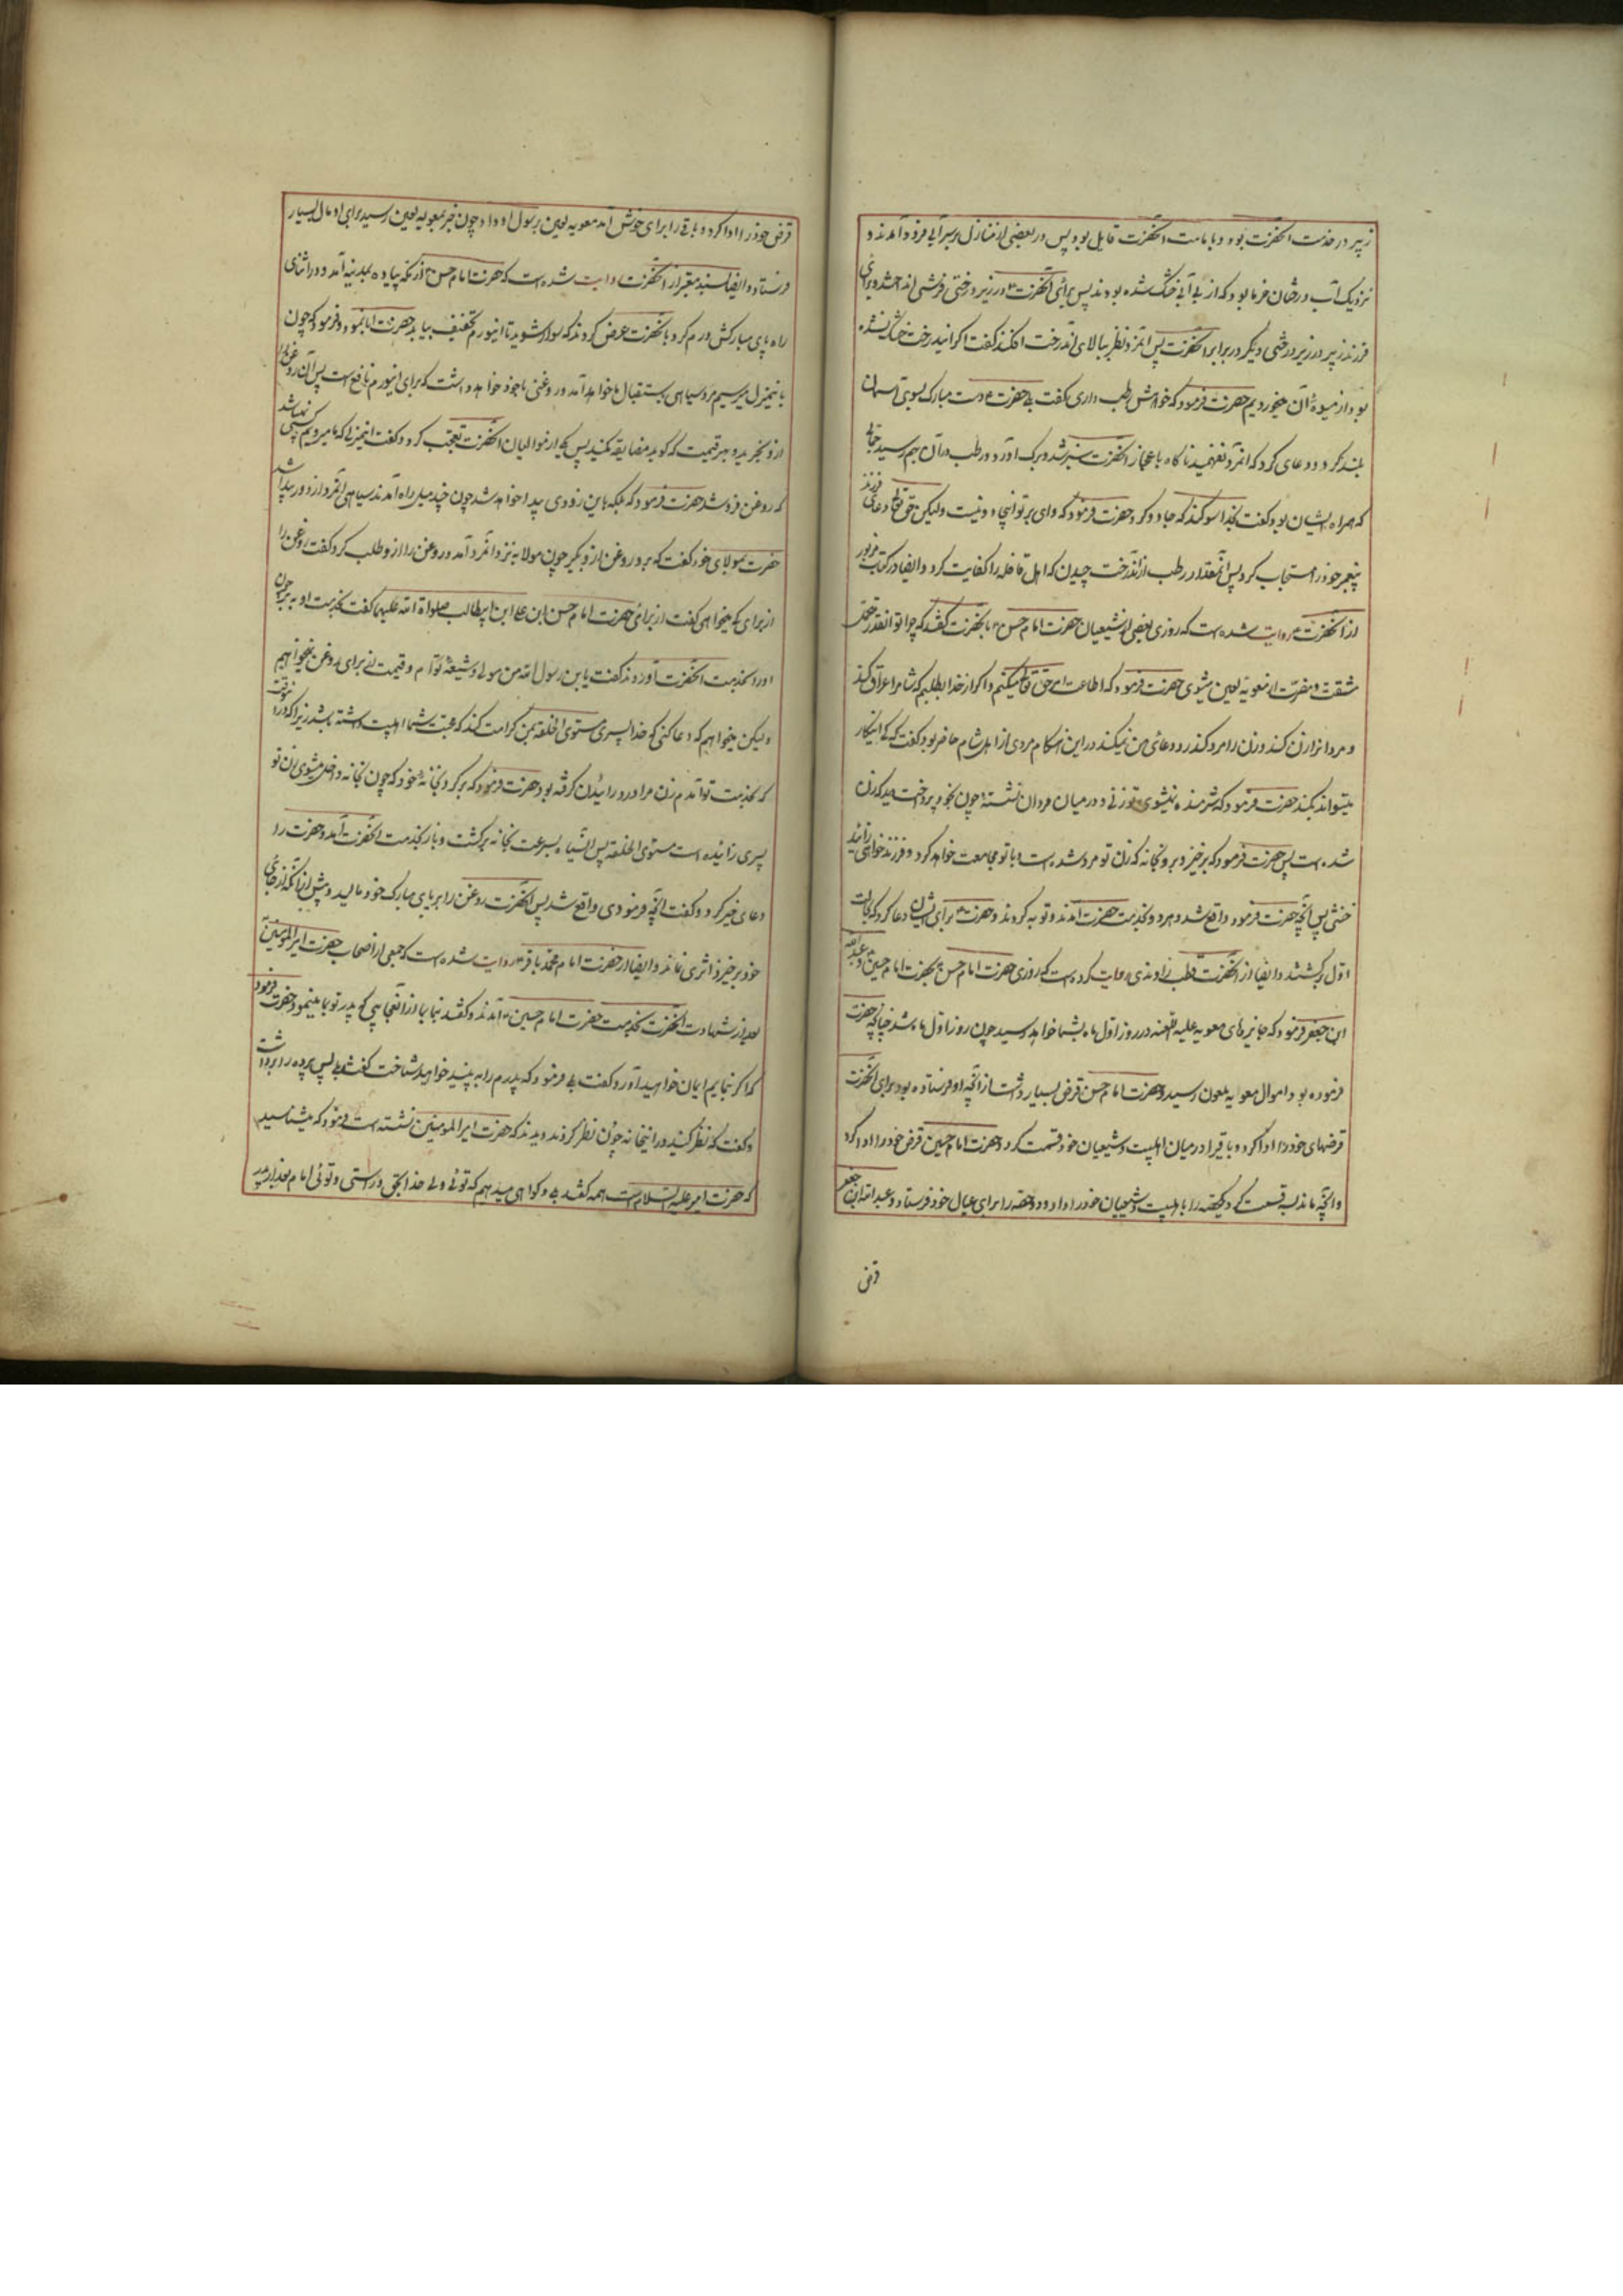 زبیر در خدمت آنحضرت بود و بامامت آنحضرت قایل بود پس در بعضی از منازل بر سر آبی فرود آمدند و
نزدیک آب درختان خرما بود که از بی آبی خشک شده بودند پس برای آنحضرت در زیر درختی فرشی انداختند و برای
فرزند زبیر در زیر درختی دیگر در برابر آنحضرت پس آنمرد نظر ببالای آندرخت افکند گفت اگر این درخت خشک نشده
بود از میوهٔ آن میخوردیم حضرت فرمود که خواهش رطب داری گفت بلی حضرت دست مبارک بسوی آسمان
بلند کرد و دعای کرد که آنمرد نفهمید ناگاه باعجاز آنحضرت سبز شد و برگ آورد و رطب در آن بهم رسید جمالی
که همراه ایشان بود گفت بخدا سوگند که جادو کرد حضرت فرمود که وای بر تو اینجادو نیست ولیکن حق تعالی دعای فرزند
پیغمبر خود را مستجاب کرد پس آنمقدار رطب از آندرخت چیدن که اهل قافله را کفایت کرد و ایضا در کتاب مزبور
از آنحضرت روایت شده است که روزی بعضی از شیعیان حضرت امام حسن بآنحضرت گفتند که چرا تو آنقدر تحمل
مشقت و مضرت از معویه لعین میشوی حضرت فرمود که اطاعت امر حق تعالی میکنم و اگر از خدا بطلبم که شام را عراق کند
و مرد انرا زن کند و زن را مرد کند رد دعای من نمیکند در این هنگام مردی از اهل شام حاضر بود گفت که کی اینکار
میتواند بکند حضرت فرمود که شرمنده نمیشوی تو زنی و در میان مردان نشستهٔ چون بخود پرداخت دید که زن
شده است پس حضرت فرمود که برخیز و برو بخانه که زن تو مرد شده است و با تو مجامعت خواهد کرد و فرزند خواهی زائید
خنثی پس آنچه حضرت فرمود واقع شد و هر دو بخدمت حضرت آمدند و توبه کردند و حضرت برای ایشان دعا کرد که بحالت
اول برگشتند و ایضا از آنحضرت قطب راوندی روایت کرده است که روزی حضرت امام حسن بحضرت امام حسین و عبدالله
ابن جعفر فرمود که جایزهای معویه علیه اللعنه در روز اول ماه بشما خواهد رسید چون روز اول ماه شد چنانچه حضرت
فرموده بود اموال معویه ملعون رسید و حضرت امام حسن قرض بسیار داشت از آنچه او فرستاده بود برای آنحضرت
قرضهای خود را ادا کرد و باقیرا در میان اهلبیت و شیعیان خود قسمت کرد و حضرت امام حسین قرض خود را ادا کرد
و آنچه ماند به قسمت کرد یکحصه را باهلبیت و شیعیان خود را داد و دو حصه را برای عیال خود فرستاد و عبدالله ابن جعفر
قرض
قرض خود را ادا کرد و باقی را برای خوش آمد معویه لعین برسول او داد چون خبر بمعویه لعین رسید برای او مال بسیار
فرستاد و ایضا بسند معتبر از آنحضرت روایت شده است که حضرت امام حسن از مکه پیاده بمدینه آمد و در اثنای
راه پای مبارکش ورم کرد بآنحضرت عرض کردند که سوار شوید تا اینورم تخفیف بیابد حضرت ابا نمود و فرمود که چون
باینمنزل میرسیم مرد سیاهی باستقبال ما خواهد آمد و روغنی با خود خواهد داشت که برای اینورم نافع است پس آن روغن را
ازو بخرید و بهر قیمت که گوید مضایقه مکنید پس یکی از موالیان آنحضرت تعجب کرد و گفت اینمنزلی که ما میرویم کسی نمیباشد
که روغن فروشد حضرت فرمود که بلکه باین زودی پیدا خواهد شد چون چند میل راه آمدند سیاهی آنمرد از دور پیدا شد
حضرت بمولای خود گفت که برو روغن ازو بگیر چون مولا به نزد آنمرد آمد و روغن را ازو طلب کرد گفت روغن را
از برای که میخواهی گفت از برای حضرت امام حسن ابن علی ابن ابیطالب صلواة الله علیهما گفت بخدمت او ببر چون
اورا بخدمت آنحضرت آوردند گفت یابن رسول الله من مولی و شیعهٔ توام و قیمت از برای روغن نمیخواهم
ولیکن میخواهم که دعا کنی که خدا پسری مستوی الخلقه بمن کرامت کند که محبت شما اهلبیت داشته باشد زیرا که در وقت
که بخدمت تو آمدم زن مرا درد زائیدن گرفته بود حضرت فرمود که برگرد بخانهٔ خود که چون بخانه داخل میشوی زن تو
پسری زائیده است مستوی الخلقه پس آنسیاه بسرعت بخانه برگشت و باز بخدمت آنحضرت آمد و حضرت را
دعای خیر کرد و گفت آنچه فرمودی واقع شد پس آنحضرت روغن را بر پای مبارک خود مالید و پیش از آنکه از جای
خود برخیزد اثری نماند و ایضا از حضرت امام محمد باقر روایت شده است که جمعی از اصحاب حضرت امیرالمومنین
بعد از شهادت آنحضرت بخدمت حضرت امام حسین آمدند و گفتند بنما بما از آن عجایبی که پدر تو بما مینمود حضرت فرمود
که اگر بنمایم ایمان خواهید آورد گفتند بلی فرمود که پدرم را به بینید خواهید شناخت گفتند بلی پس پرده را برداشت
و گفت که نظر کنید در اینخانه چون نظر کردند دیدند که حضرت امیرالمومنین نشسته است فرمود که میشناسید
که حضرت امیر علیه السلام است همه گفتند بلی و گواهی میدهیم که توئی ولی خدا بحق و راستی و توئی امام بعد از پدر